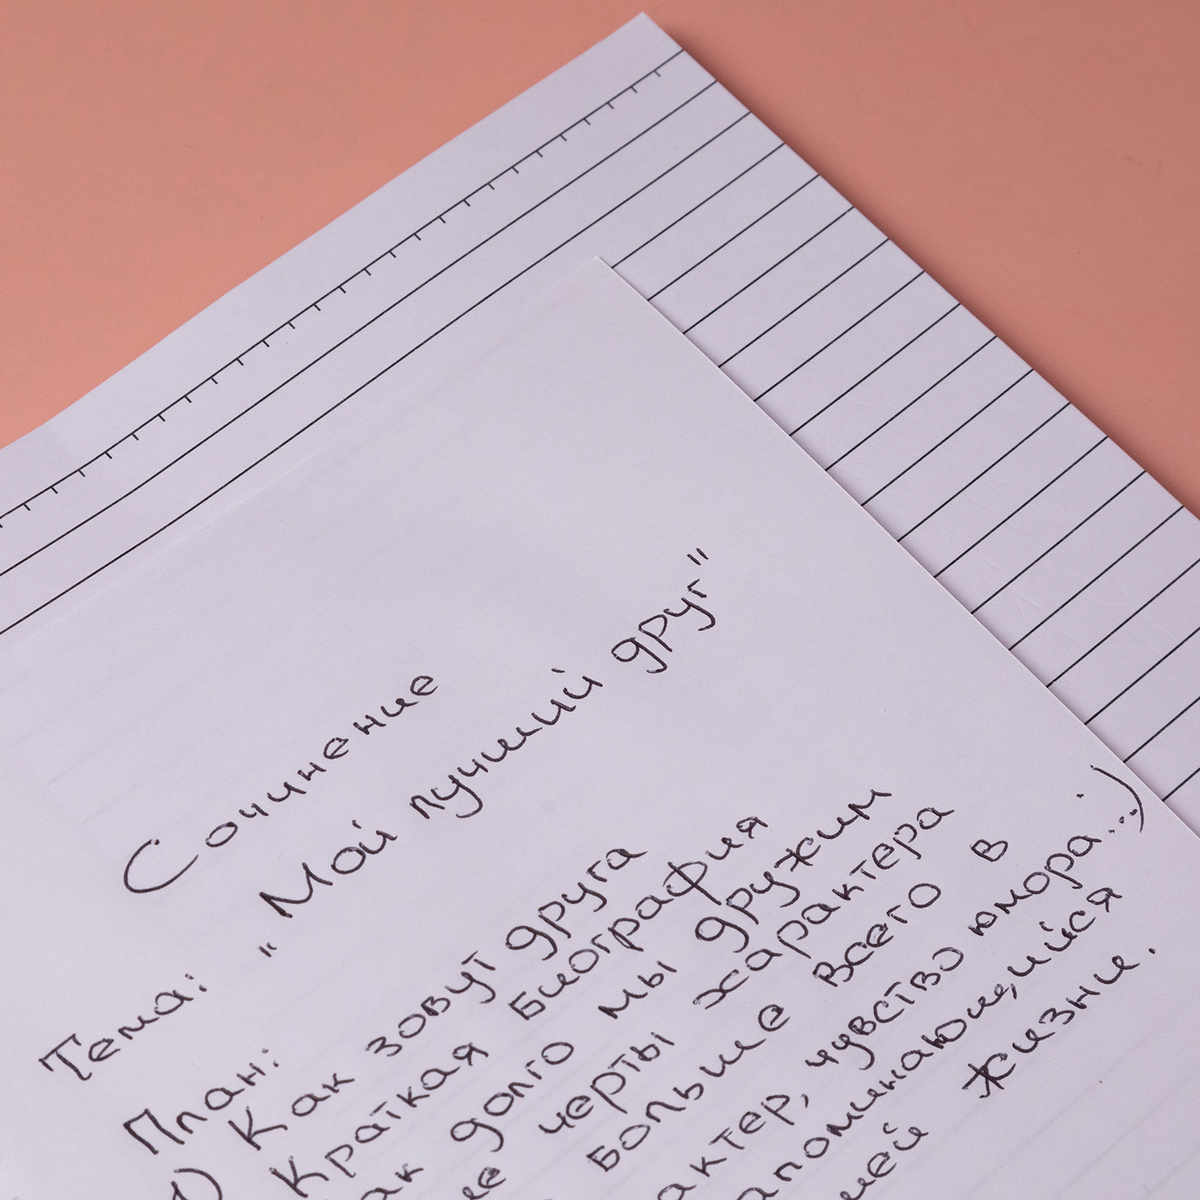 Сочинение
Тема: „Мой лучший друг"
План:
1) Как зовут друга
Краткая биография
долго мы дружим
черты характера
больше всего в
чувство юмора...)
жизни.